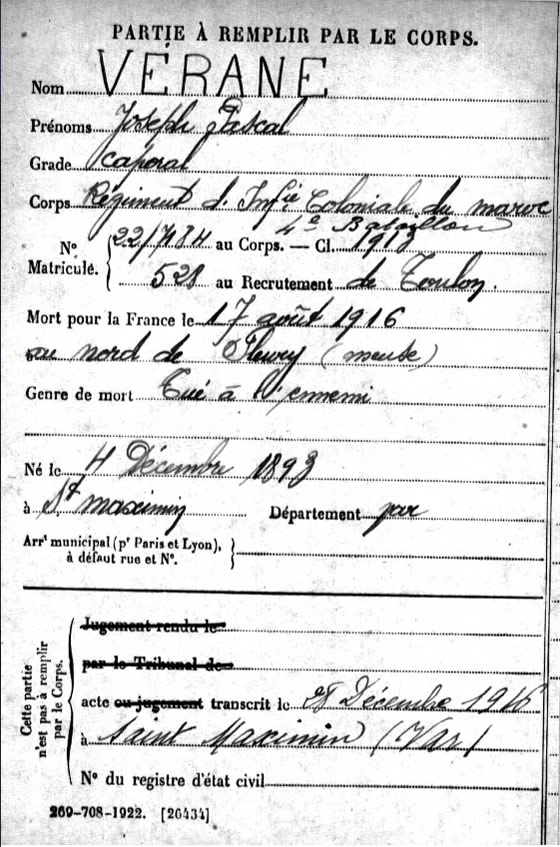 PARTIE À REMPLIR PAR LE CORPS.
Nom VÉRANE
Prénoms Joseph Pascal
Grade Caporal
Corps Régiment d'Infie Coloniale du maroc
4e Bataillon
No 22/7484 au Corps. — Cl. 1913
Matricule. 528 au Recrutement de Toulon.
Mort pour la France le 17 août 1916
au nord de Fleury (meuse)
Genre de mort Tué à l'ennemi
Né le 4 Décembre 1893
à St maximin Département var
Arrt municipal (pr Paris et Lyon),
à défaut rue et No.
Cette partie
n'est pas à remplir
par le Corps.
Jugement rendu le
par le Tribunal de
acte ou jugement transcrit le Décembre 1916
à Saint Maximin (Var)
No du registre d'état civil
269-708-1922. [26434]